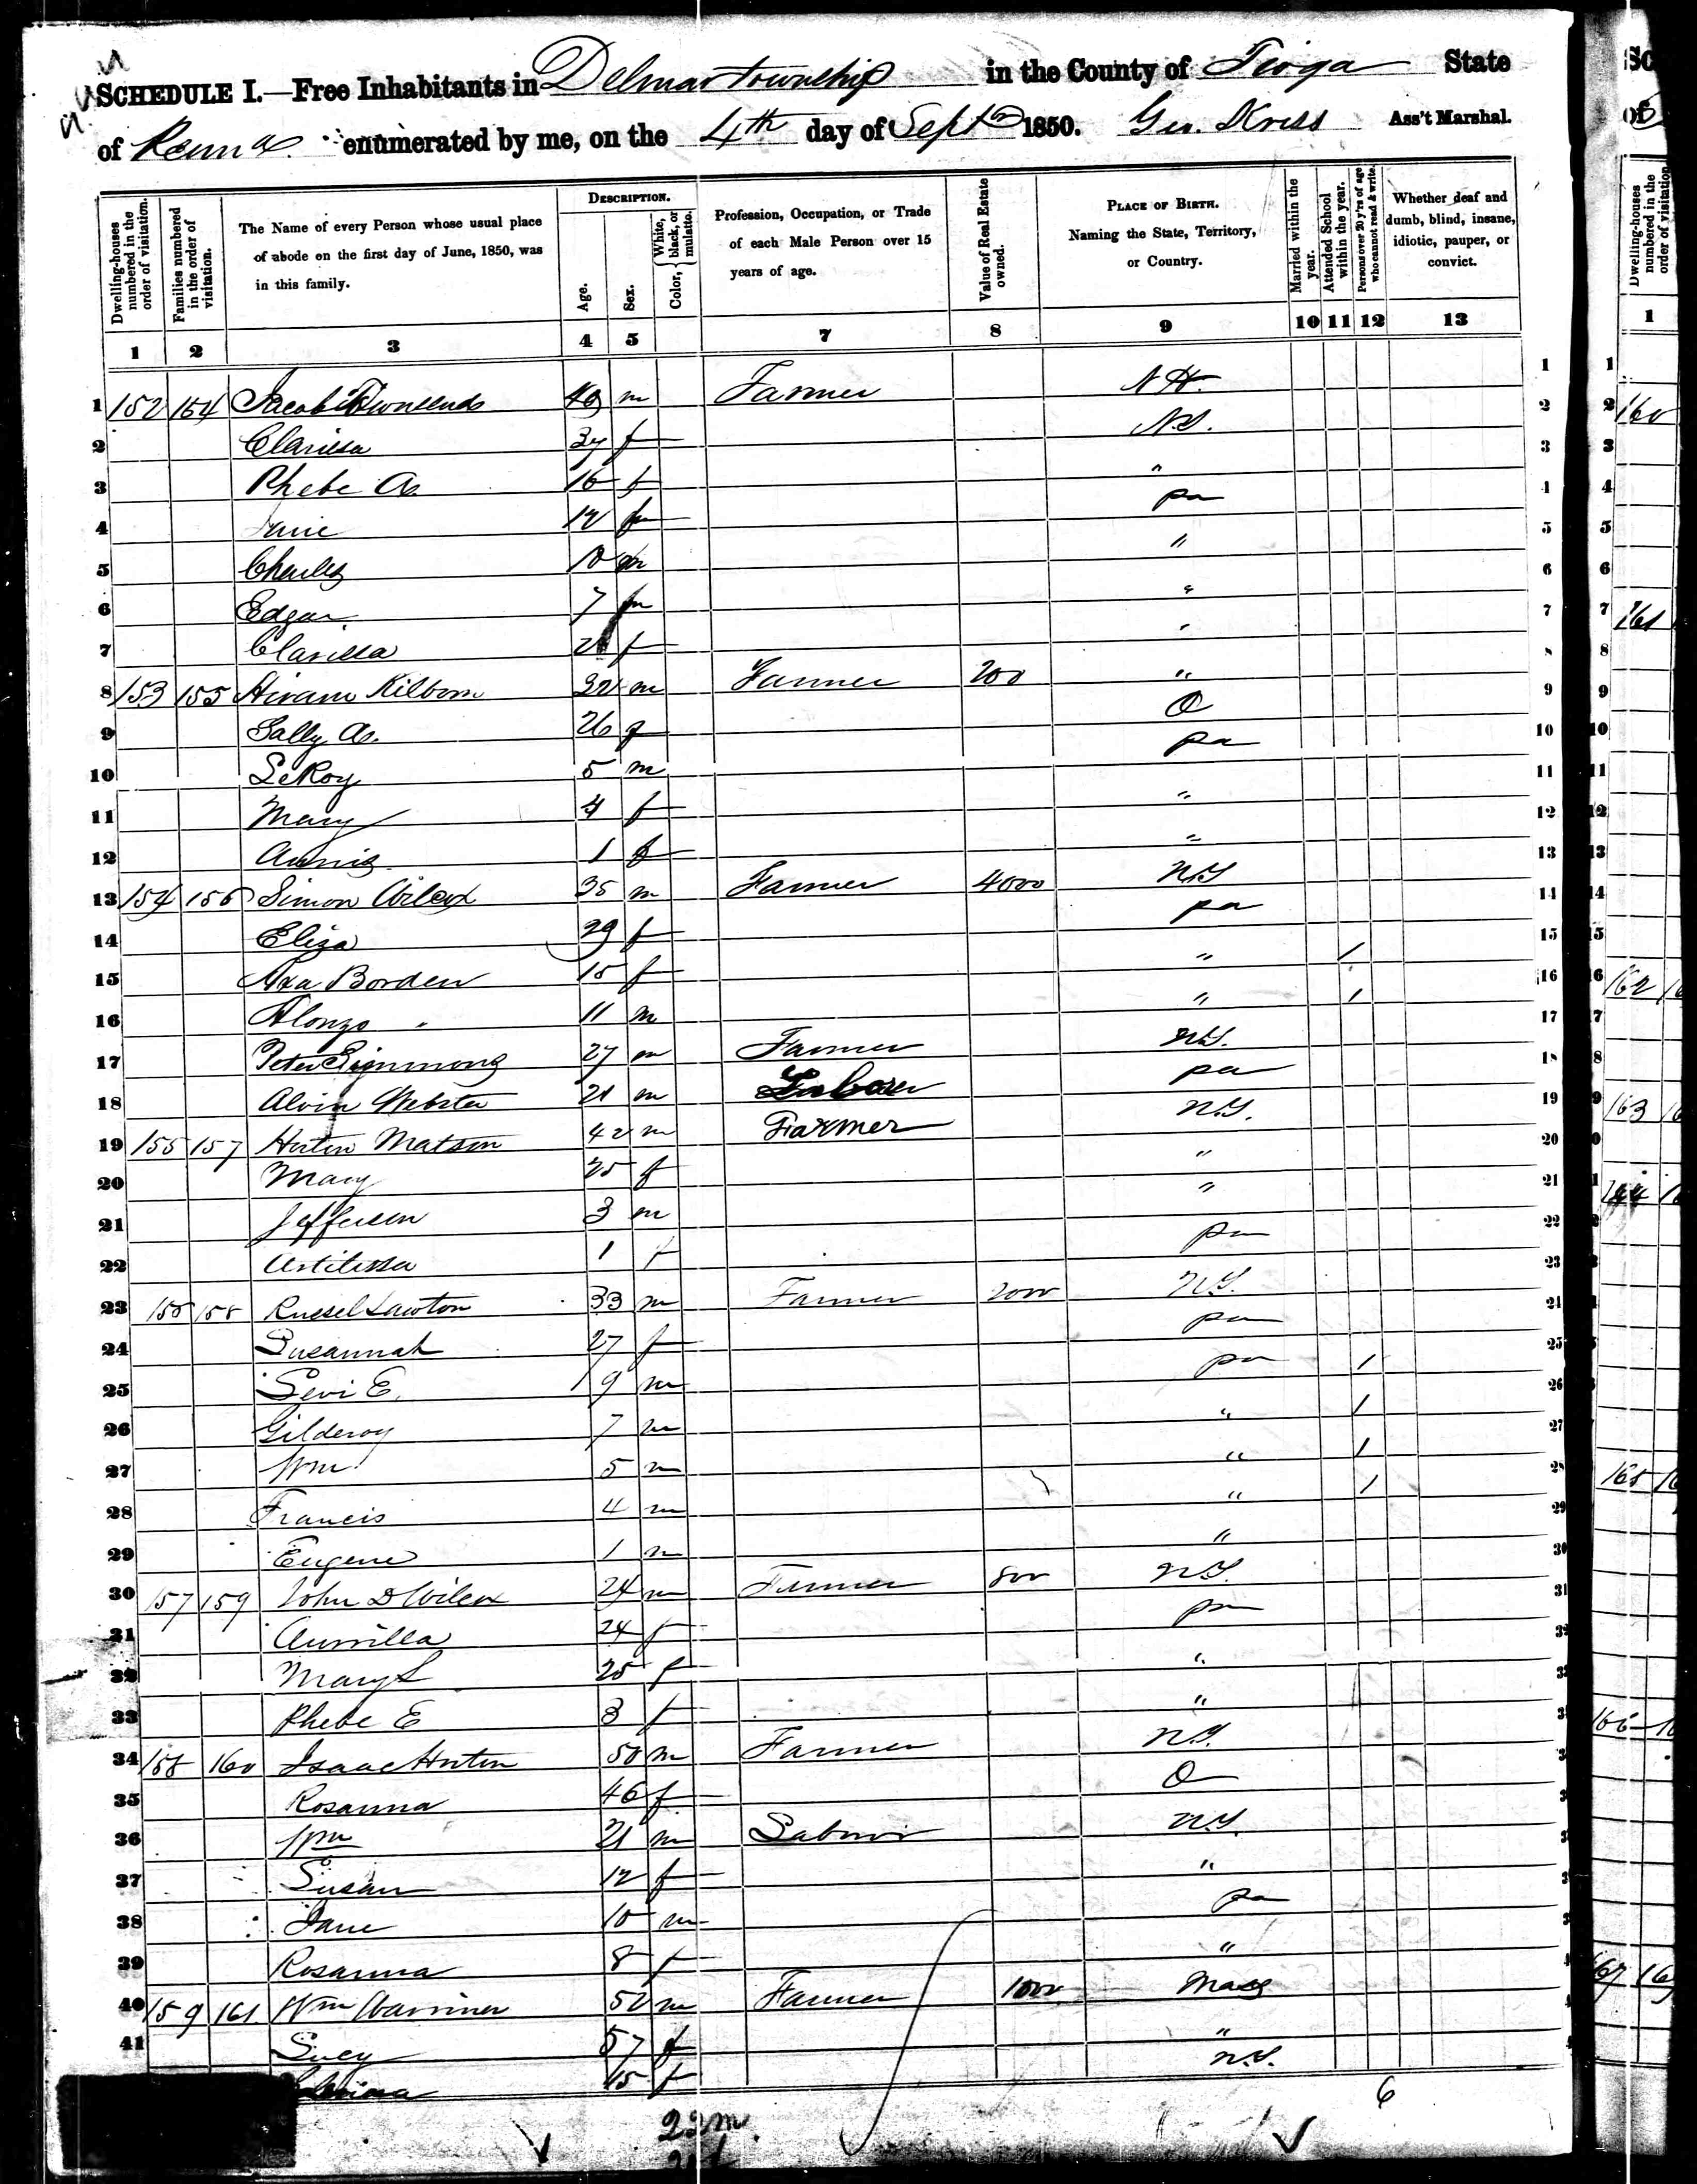 SCHEDULE I.—Free Inhabitants in Delmar township in the County of Tioga State
of Penna. enumerated by me, on the 4th day of Septr 1850. Geo. Kress Ass't Marshal.
Dwelling-houses numbered in the order of visitation.
Families numbered in the order of visitation.
The Name of every Person whose usual place of abode on the first day of June, 1850, was in this family.
DESCRIPTION.
Age.
Sex.
Color, { White, black, or mulatto.
Profession, Occupation, or Trade of each Male Person over 15 years of age.
Value of Real Estate owned.
PLACE OF BIRTH. Naming the State, Territory, or Country.
Married within the year.
Attended School within the year.
Persons over 20 y'rs of age who cannot read & write.
Whether deaf and dumb, blind, insane, idiotic, pauper, or convict.
1 2 3 4 5 7 8 9 10 11 12 13
1 152 154 Jacob Townsend m Farmer N H. 1
2 Clarissa 37 f N.Y. 2
3 Phebe A. 16 f " 3
4 Jane 12 pa 4
5 Charles 10 m " 5
6 Edgar 7 m " 6
7 Clarissa 2 f " 7
8 153 155 Hiram Kilborn 32 m Farmer 200 " 8
9 Sally A. 26 f O 9
10 LeRoy 5 m pa 10
11 Mary 4 f " 11
12 1 f " 12
13 154 156 Simon Wilcox 35 m Farmer 4000 N.Y 13
14 Eliza 29 f pa 14
15 Axa Borden 15 f " / 15
16 Alonzo " 11 m " / 16
17 Peter Simmons 27 m Farmer N.Y. 17
18 Alvin Webster 21 m Laborer pa 18
19 155 157 Horton Matson 42 m Farmer N.Y. 19
20 Mary 25 f " 20
21 Jefferson 3 m " 21
22 1 f pa 22
23 156 158 Russel Lawton 33 m Farmer 2000 N.Y. 23
24 Susannah 27 f pa 24
25 Levi E. 9 m pa / 25
26 Gilderoy 7 m " / 26
27 Wm 5 m " / 27
28 Francis 4 m " / 28
29 Eugene 1 m " 29
30 157 159 John D Wilcox 24 m Farmer 800 N.Y. 30
31 Aurrilla 24 f pa 31
32 Mary L 25 f "
33 Phebe E 3 f "
34 158 160 Isaac Horton 50 m Farmer N.Y.
35 Rosanna 46 f O
36 Wm 21 m Laborer N.Y.
37 Susan 12 f "
38 Jane 10 m pa
39 Rosanna 8 f "
40 159 161 Wm Warriner 52 m Farmer 1000 Mass
41 Lucy 57 f "
15 f N.Y.
6
23 m.